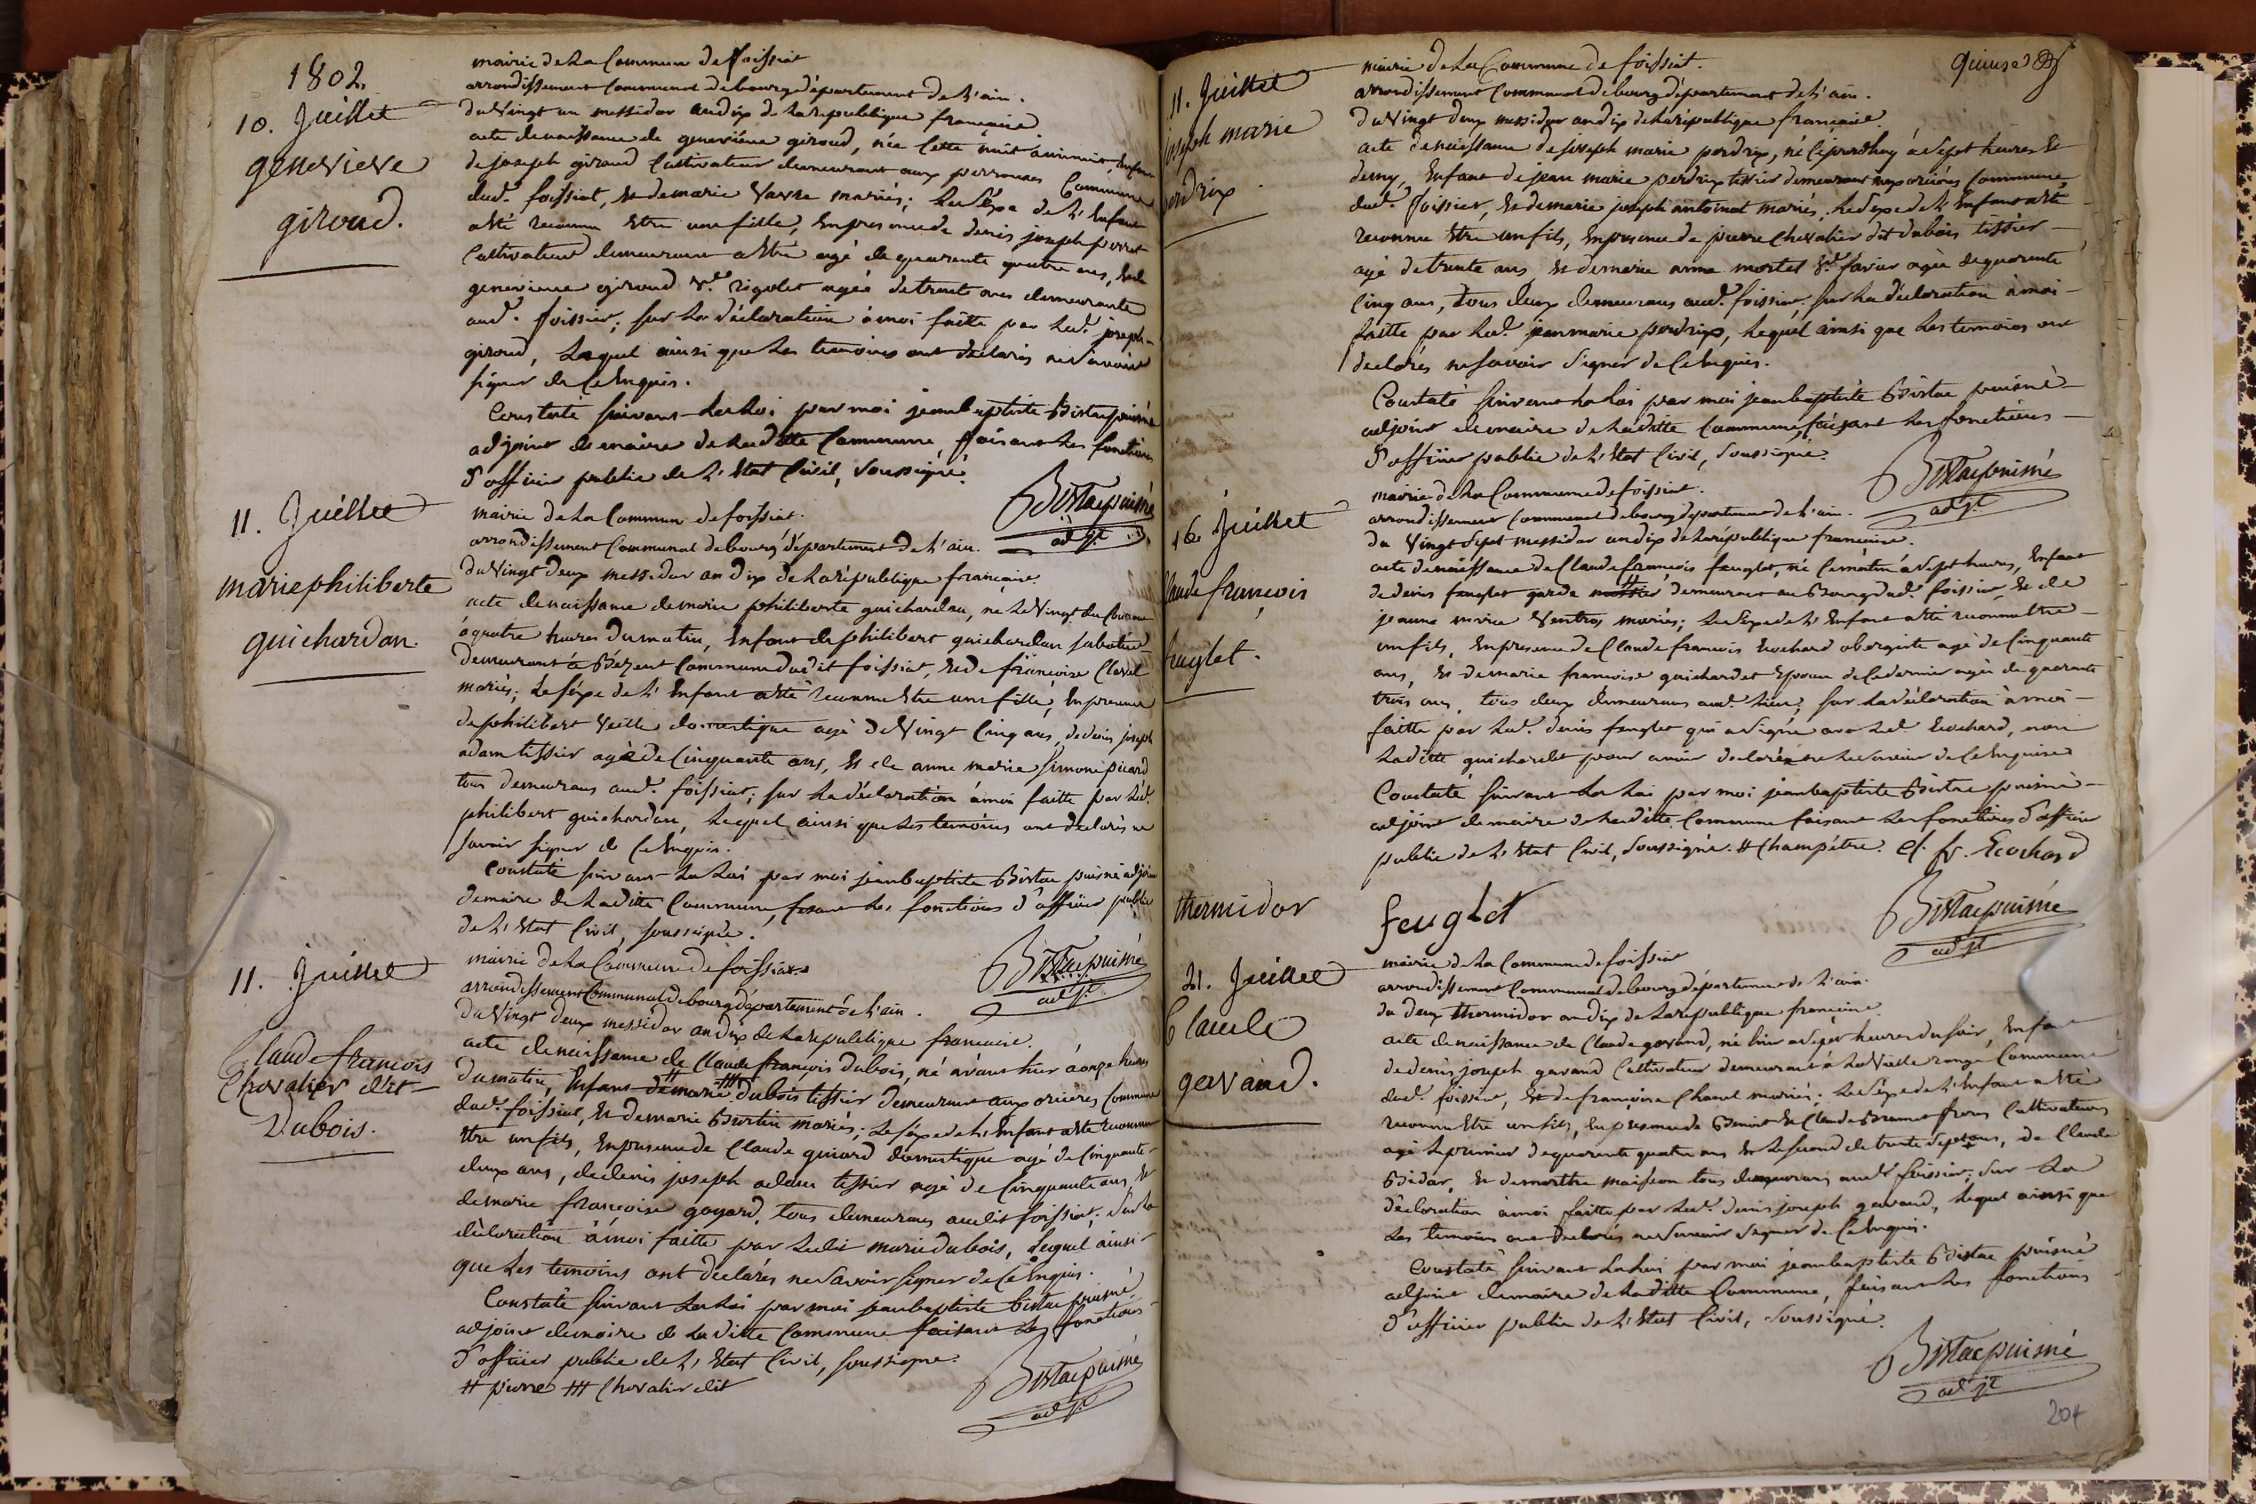 1802
10. Juillet
genevieve
giroud.
mairie de La Commune de foissiat
arrondissement Communal debourg département de L'ain.
du Vingt un messidor an dix de La republique française.
acte denaissance de genevieve giroud, née Cette nuit aminuit, Enfant
de joseph giroud Cultivateur demeurant aux perrouses Commune
dud. foissiat, et demarie Varre mariés; Le Séxe de L'Enfant
a été reconnu Etre une fille, En presence de denis joseph perret
Cultivateur demeurant agé de quarente quatre ans, et de
genevieve giroud ve. rigolet agée de trente ans demeurante
aud. foissiat; sur La déclaration à moi faitte par Led. joseph
giroud, Lequel ainsi que Les temoins ont déclarés ne Savoir
signer de Ce Enquis.
Constaté suivant La Loi par moi jeanbaptiste Bistac puisné
adjoint de maire de Ladite Commune, faisant Les fonctions
d'officier public de L'Etat Civil, Soussigné.
Bistac puisné
adjt.
11. Juillet
mariephiliberte
guichardan
mairie de La Commun de foissiat.
arrondissement Communal debourg département de L'ain.
du Vingt deux messidor an dix de La république française.
acte denaissance demarie philiberte guichardan, né Le Vingt du Courant
à quatre heures Dumatin, Enfant de philibert guichardan sabotier
demeurant à Bézent Commune dudit foissiat, et de françoise Clavel
mariés; Le séxe de L'Enfant a été reconnu Etre une fille, En presence
de philibert Veille domestique agé de Vingt Cinq ans, de denis joseph
adam tissier agé de Cinquante ans, Et de anne marie Simone picard
tous demeurans aud. foissiat; sur La déclaration à moi faitte par Led.
philibert guichardan, Lequel ainsi que Les temoins ont déclarés ne
savoir signer de Ce Enquis.
Constaté suivant La Loi par moi jeanbaptiste Bistac puisné adjoint
de maire de Laditte Commune, fesant Les fonctions d'officier public
de L'Etat Civil, soussigné.
Bistac puisné
adjt.
11. Juillet
Claude françois
Chevalier dit
Dubois.
mairie de La Commune de foissiat
arrondissement Communal debourg département de L'ain.
du Vingt deux messidor an dix de La republique françoise.
acte denaissance de Claude françois Dubois, né avant hier à onze heures
dumatin, Enfant # demarie ### dubois tissier demeurant aux orcières Commune
dud. foissiat, Et demarie Burtin mariés; Le séxe de L'Enfant a été reconnu
Etre un fils, En presence de Claude guiard domestique agé de Cinquante
deux ans, de denis joseph adam tissier agé de Cinquante ans, Et
de marie françoise gayard, tous demeurans audit foissiat; Sur La
déclaration à moi faitte par Ledit marie dubois, Lequel ainsi
que Les temoins ont déclarés ne Savoir signer de Ce Enquis.
Constaté suivant La Loi par moi jeanbaptiste Bistac puisné
adjoint de maire de Laditte Commune faisant Les fonctions
d'officier public de L'Etat Civil, soussigné.
# pierre ### Chevalier dit
Bistac puisné
adjt.
quinze
11. Juillet
joseph marie
perdrix.
mairie de La Commune de foissiat.
arrondissement Communal debourg département de L'ain.
du Vingt deux messidor an dix de La république française.
acte denaissance de joseph marie perdrix, né Cejourdhuy à Sept heures Et
demy, Enfant de jean marie perdrix tissier demeurant aux orcières Commune
dud. foissiat, Et de marie joseph antoinat mariés, Le Sexe de L'Enfant a été
reconnu Etre un fils, En presence de pierre Chevalier dit dubois tissier
agé de trente ans, Et demarie anne mortel ve. favier agée de quarente
Cinq ans, Tous deux demeurans aud. foissiat. Sur La déclaration à moi
faitte par Led. jean marie perdrix, Lequel ainsi que Les temoins ont
declarés ne Savoir Signer de Ce Enquis.
Constaté suivant La Loi par moi jeanbaptiste Bistac puisné
adjoint de maire de Laditte Commune, faisant Les fonctions
d'officier public de L'Etat Civil, Soussigné.
Bistac puisné
adjt.
16 Juillet
Claude françois
feuglet.
mairie de La Commune de foissiat.
arrondissement Communal debourg département de L'ain.
du Vingt Sept messidor an dix de La république françoise.
acte denaissance de Claude françois feuglet, né Cematin à Sept heures, Enfant
de denis feuglet garde # demeurant au Bourg dud. foissiat, Et de
jeanne marie Ventros mariés; Le Séxe de L'Enfant a été reconnu Etre
un fils, En presence de Claude francois Ecochard obergiste agé de Cinquante
ans, Et de marie francoise guichardet Epouse de Ce dernier agée de quarante
trois ans, tous deux demeurans aud. lieu; sur La déclaration à moi
faitte par Led. denis feuglet qui a Signé avec Led. Ecochard, non
Laditte guichardet pour avoir declaré ne Le Savoir de Ce Enquise
Constaté suivant La Loi par moi jeanbaptiste Bistac puisné
adjoint de maire de Laditte Commune faisant Les fonctions d'officier
public de L'Etat Civil, Soussigné. # Champêtre. Cl. fr. Ecochard
feuglet
Bistac puisné
adjt.
thermidor
21. Juillet
Claude
gavand.
mairie de La Commune de foissiat
arrondissement Communal debourg département de L'ain.
du deux thermidor an dix de La republique françoise.
acte denaissance de Claude gavand, né hier à Sept heures du Soir, Enfant
de denis joseph gavand Cultivateur demeurant à La Vieille range Commune
dud. foissiat, Et de françoise Chanel mariés; Le Séxe de L'Enfant a Eté
reconnu Etre un fils, En presence de Benoit Et Claude Brunet freres Cultivateurs
agé Le premier de quarente quatre ans Et Le Second de trente Sept ans, de Claude
Bidar, Et de marthe maisson tous demeurans aud. foissiat; Sur La
déclaration à moi faitte par Led. denis joseph gavand, Lequel ainsi que
Les temoins ont declarés ne Savoir Signer de Ce Enquis.
Constaté suivant La Loi par moi jeanbaptiste Bistac puisné
adjoint de maire de Laditte Commune, faisant Les fonctions
d'officier public de L'Etat Civil, Soussigné.
Bistac puisné
adjt.
204